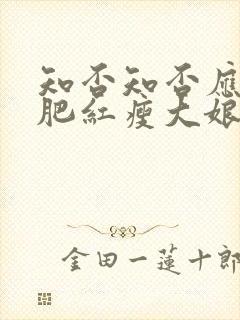 知否知否應
肥紅瘦大娘
金田一蓮十郎